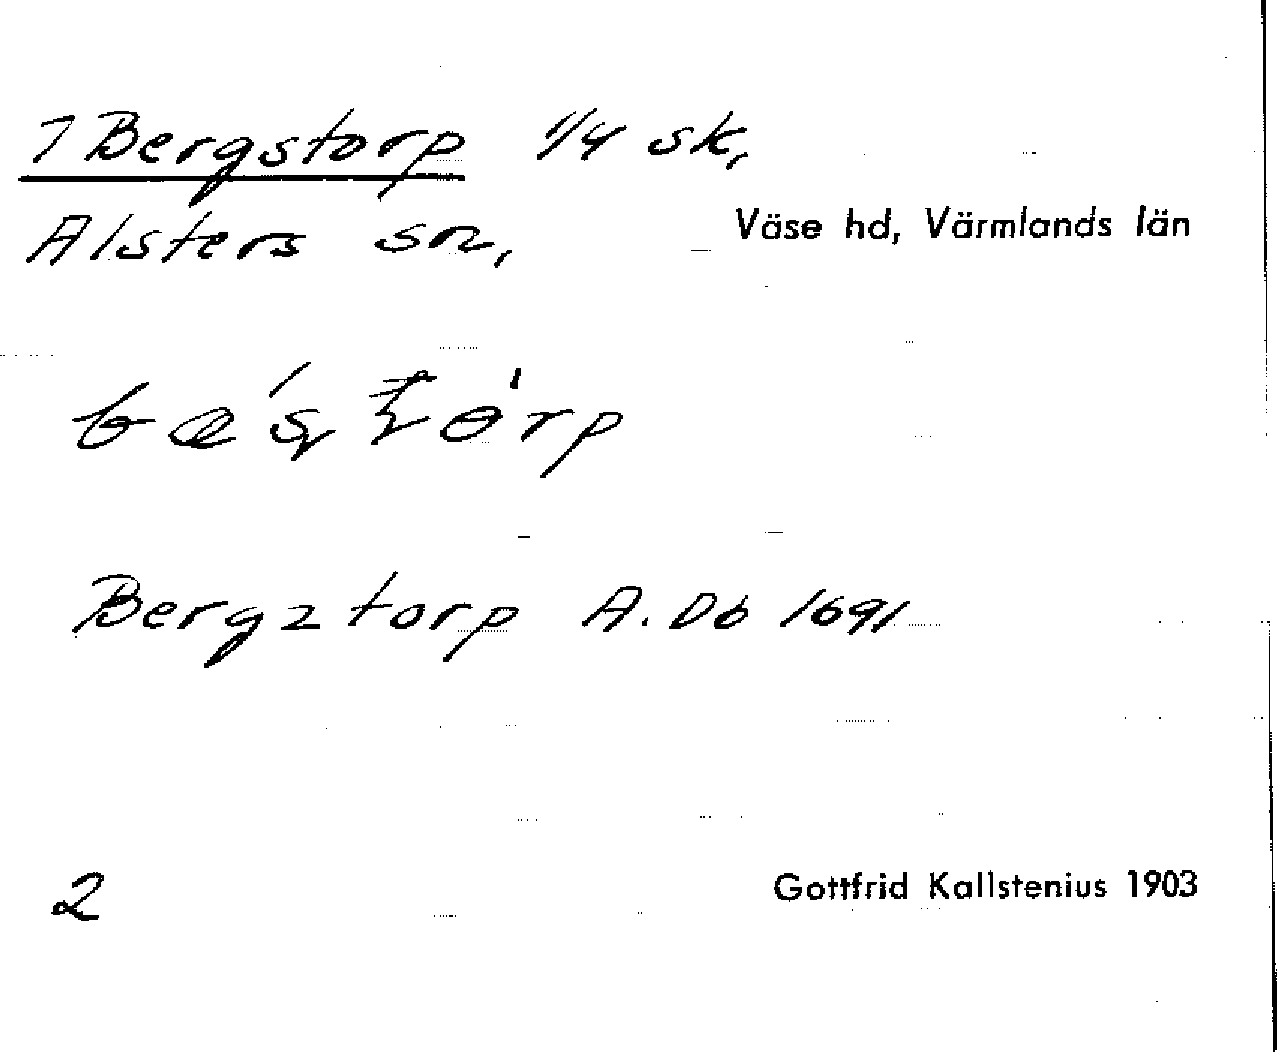 1 Bergstorp 1/4 sk,
Alsters sn, Väse hd, Värmlands län
Bergztorp A. Db 1691
2 Gottfrid Kallstenius 1903